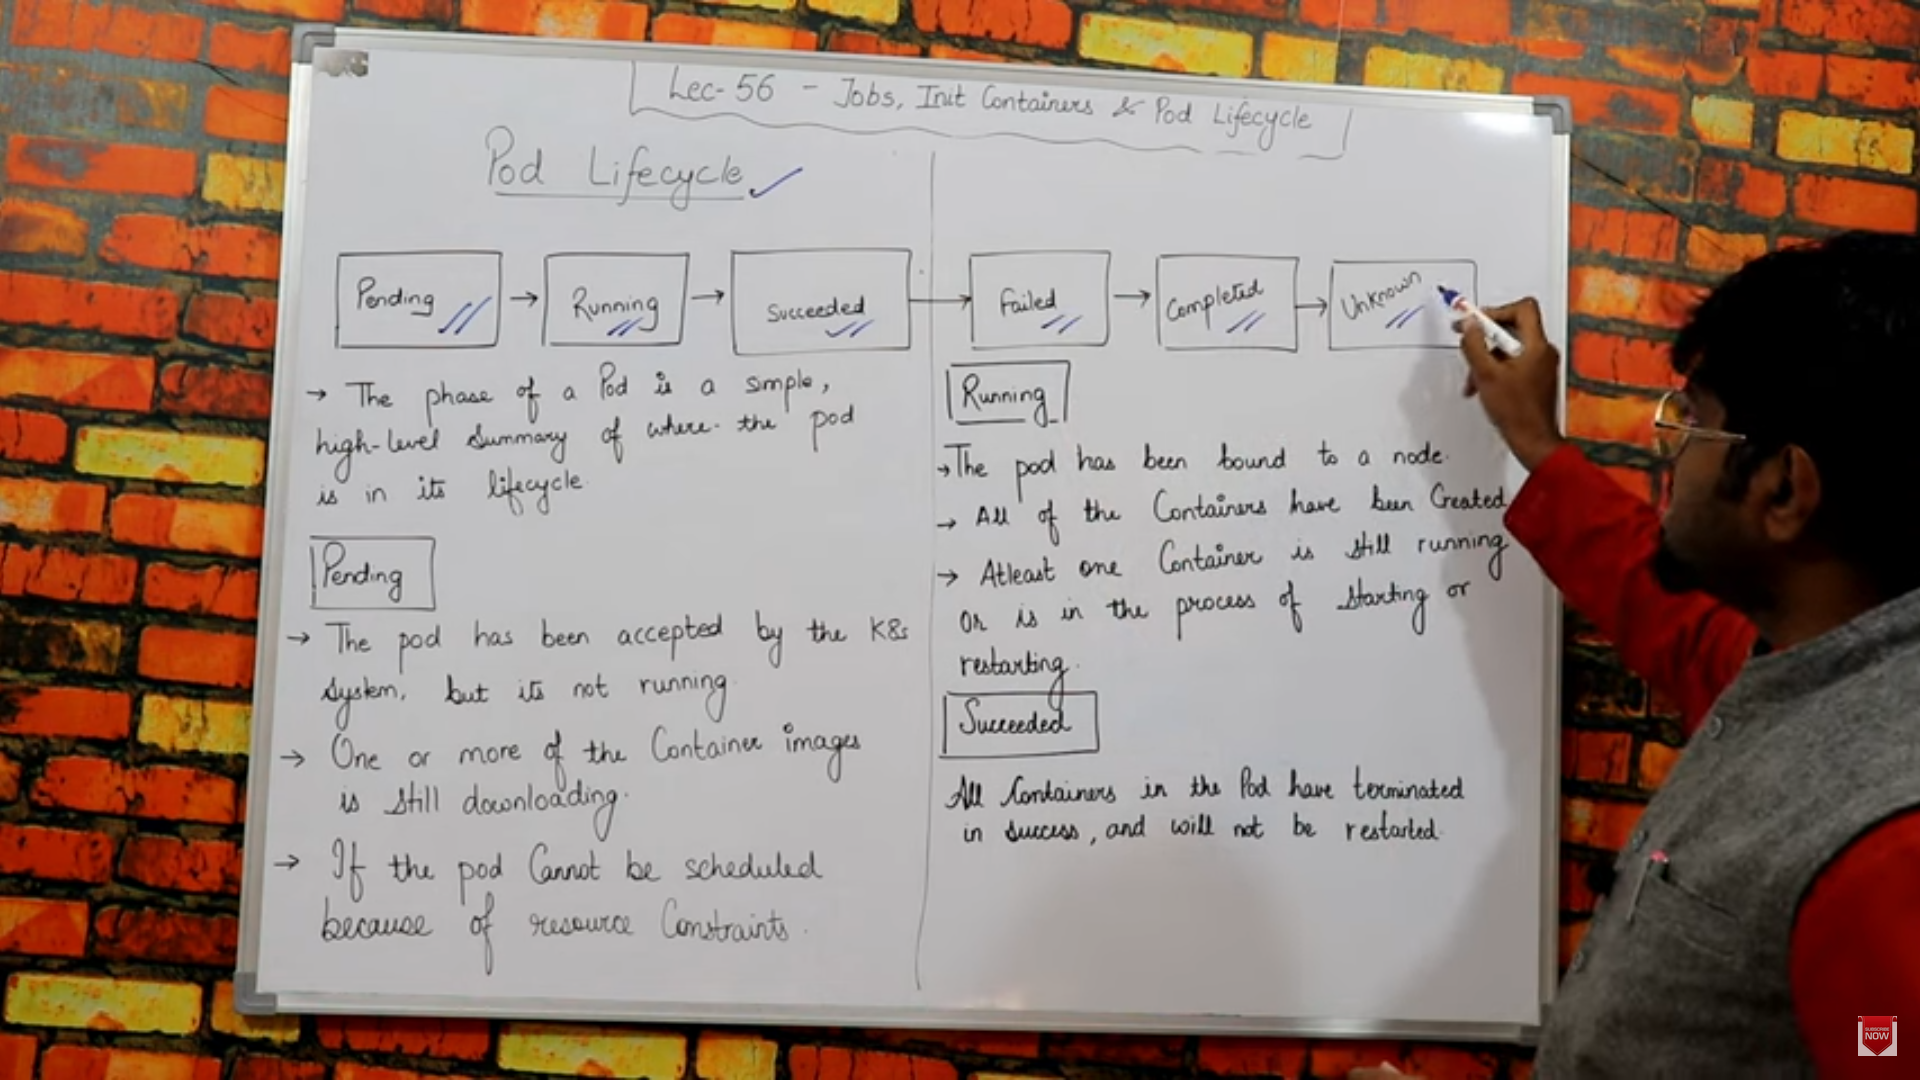 Lec-56 - Jobs, Init Containers & Pod Lifecycle
Pod Lifecycle
Pending → Running → Succeeded → Failed → Completed → Unknown
→ The phase of a Pod is a simple,
high-level summary of where the pod
is in its lifecycle.
Pending
→ The pod has been accepted by the K8s
system, but its not running.
→ One or more of the Container images
is still downloading.
→ If the pod Cannot be scheduled
because of resource Constraints.
Running
→ The pod has been bound to a node.
→ All of the Containers have been Created
→ Atleast one Container is still running
or is in the process of starting or
restarting.
Succeeded
All Containers in the Pod have terminated
in success, and will not be restarted.
SUBSCRIBE
NOW